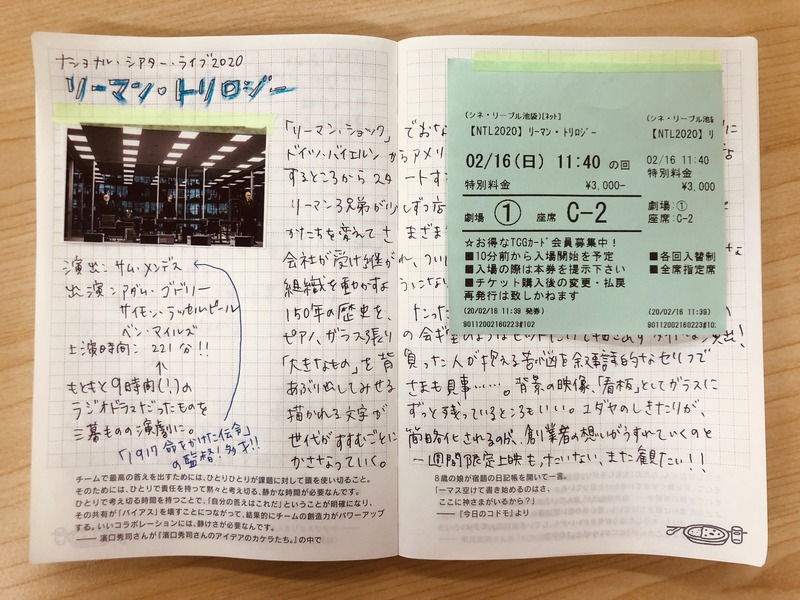 ナショナル・シアター・ライブ2020
リーマン・トリロジー
演出：サム・メンデス
出演：アダム・ゴドリー
サイモン・ラッセルビール
ベン・マイルズ
上演時間：221分!!
↑
もともと9時間(!)の
ラジオドラマだったものを
三幕もの演劇に。
「1917 命をかけた伝令」
の監督！多才!!
「リーマン・ショック」でおな
ドイツ・バイエルンからアメリ
するところからスタート
リーマン3兄弟が少しずつ店
かたちを変えてさまざま
会社が受け継が
組織を重ねかさね
150年の歴史を、
ピアノ、ガラス張りの会議室のようなセット
「大きなもの」を背負った人が抱える苦悩を叙事詩的なセリフで
あぶり出してみせるさまも見事……。背景の映像、「看板」としてガラスに
描かれる文字がずっと残っているところもいい。ユダヤのしきたりが、
世代がすすむごとに簡略化されるのが、創業者の想いがうすれていくのと
かさなっていく。一週間限定上映もったいない、また観たい!!
(シネ・リーブル池袋)[ネット]
【NTL2020】リーマン・トリロジー
02/16(日) 11:40 の回
特別料金 ¥3,000-
劇場 ① 座席 C-2
☆お得なTCGカード会員募集中！
■10分前から入場開始を予定
■入場の際は本券を提示下さい
■チケット購入後の変更・払戻
再発行は致しかねます
(20/02/16 11:39 発券)
90112002160223#102
(シネ・リーブル池袋
【NTL2020】リ
02/16 11:40
特別料金
¥3,000
劇場:①
座席:C-2
■各回入替制
■全席指定席
(20/02/16 11:39)
90112002160223#102
チームで最高の答えを出すためには、ひとりひとりが課題に対して頭を使い切ること。
そのためには、ひとりで責任を持って黙々と考え切る、静かな時間が必要なんです。
ひとりで考え切る時間を持つことで、「自分の答えはこれだ」ということが明確になり、
その共有が「バイアス」を壊すことにつながって、結果的にチームの創造力がパワーアップ
する。いいコラボレーションには、静けさが必要なんです。
―― 濱口秀司さんが『濱口秀司さんのアイデアのカケラたち。』の中で
8歳の娘が宿題の日記帳を開いて一言。
「一マス空けて書き始めるのはさ、
ここに神さまがいるから？」
―― 『今日のコドモ』より